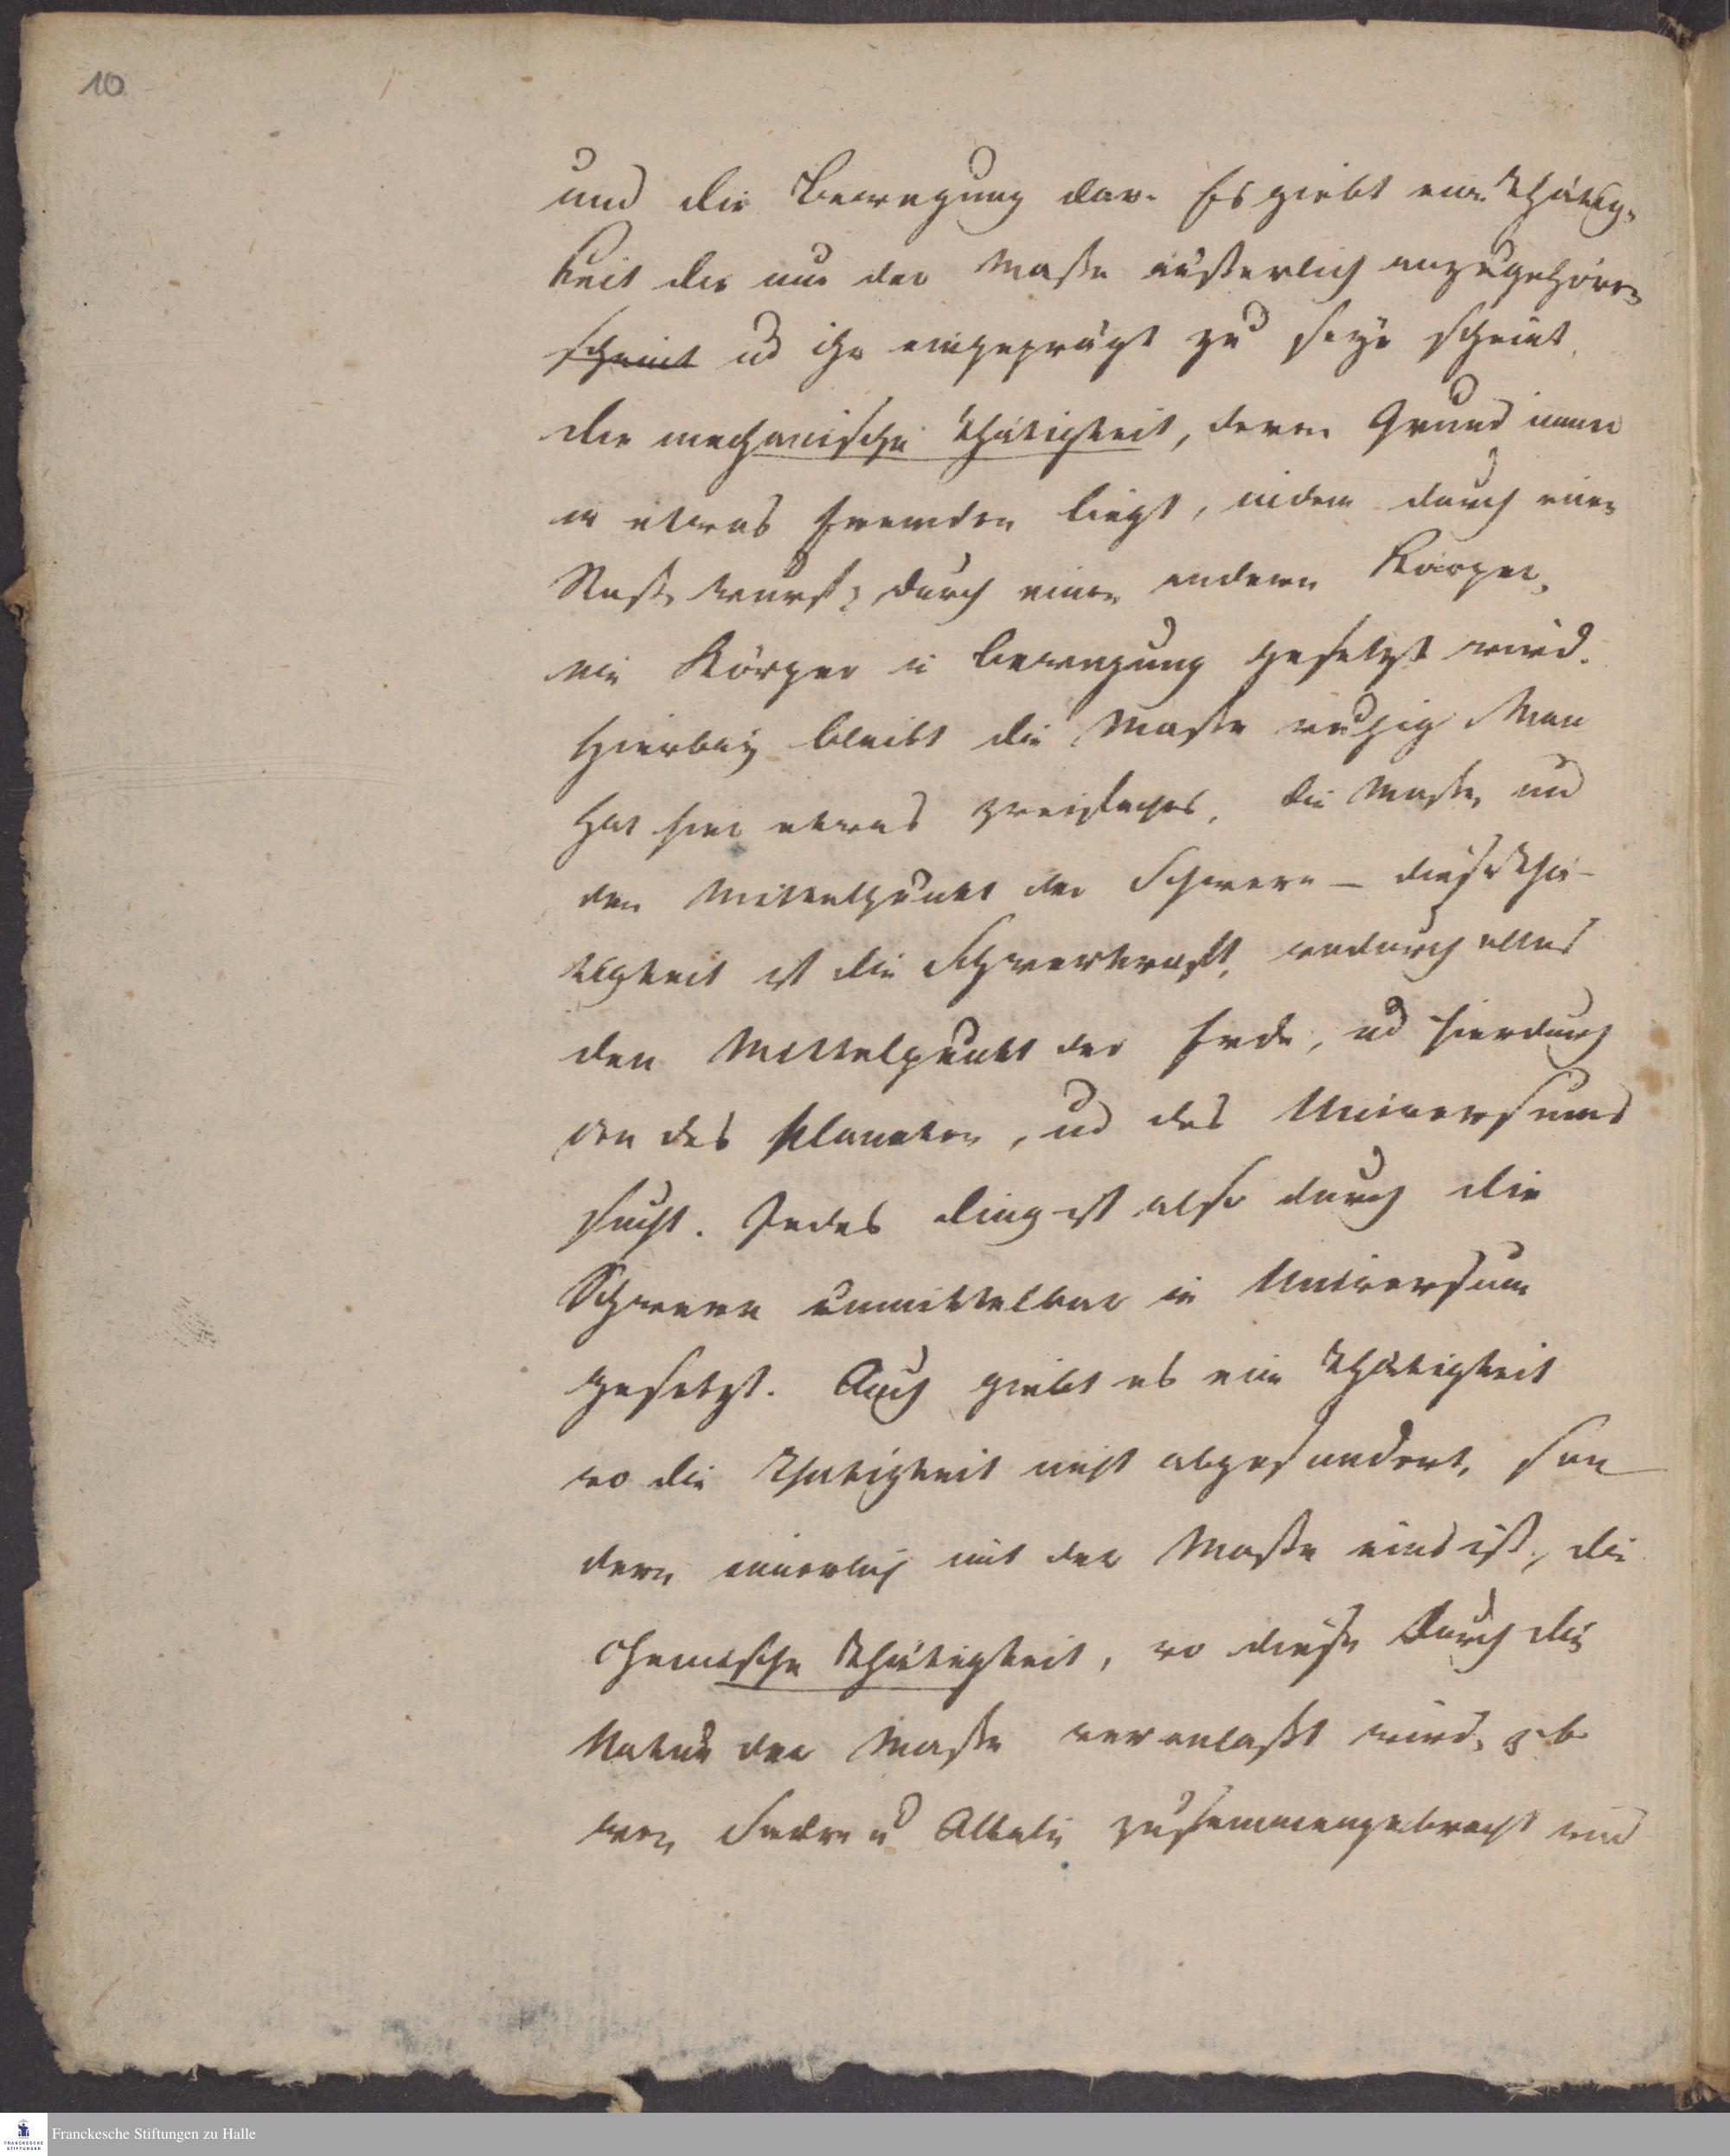 10
und die Bewegung dar. Es giebt eine Thätig-
keit die nur der Masse äußerlich anzugehören
scheint ud ihr eingeprägt zu seyn scheint,
die mechanische Thätigkeit, deren Grund immer
in etwas fremden liegt, indem durch einen
Stoß, durch einen anderen Körper,
ein Körper in Bewegung gesetzt wird.
Hierbey bleibt die Masse ruhig. Man
hat hier etwas zweifaches, die Masse, und
den Mittelpunkt der Schwere – diese Thä-
tigkeit ist die Schwerkraft, wodurch alles
den Mittelpunkt der Erde, ud hierdurch
den des Planeten, ud des Universums
sucht. Jedes Ding ist also durch die
Schwere unmittelbar in Universum
gesetzt. Auch giebt es eine Thätigkeit
wo die Thätigkeit nicht abgesondert, son
dern innerlich mit der Masse eins ist, die
chemische Thätigkeit, wo diese durch die
Natur der Masse veranlaßt wird, z. b.
wenn Säure u Alkali zusammengebracht wird
Franckesche Stiftungen zu Halle
FRANCKESCHE
STIFTUNGEN